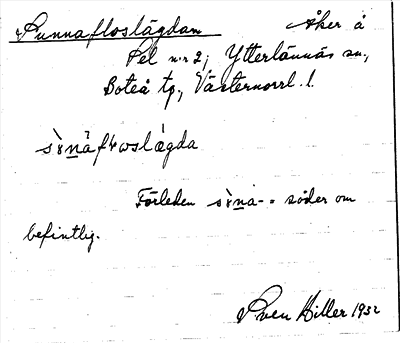 Sunnafloslägdan Åker å
Pel n:r 2, Ytterlännäs sn,
Boteå tg, Västernorrl. l.
Förleden sɤna- = söder om
befintlig.
Sven Hiller 1932